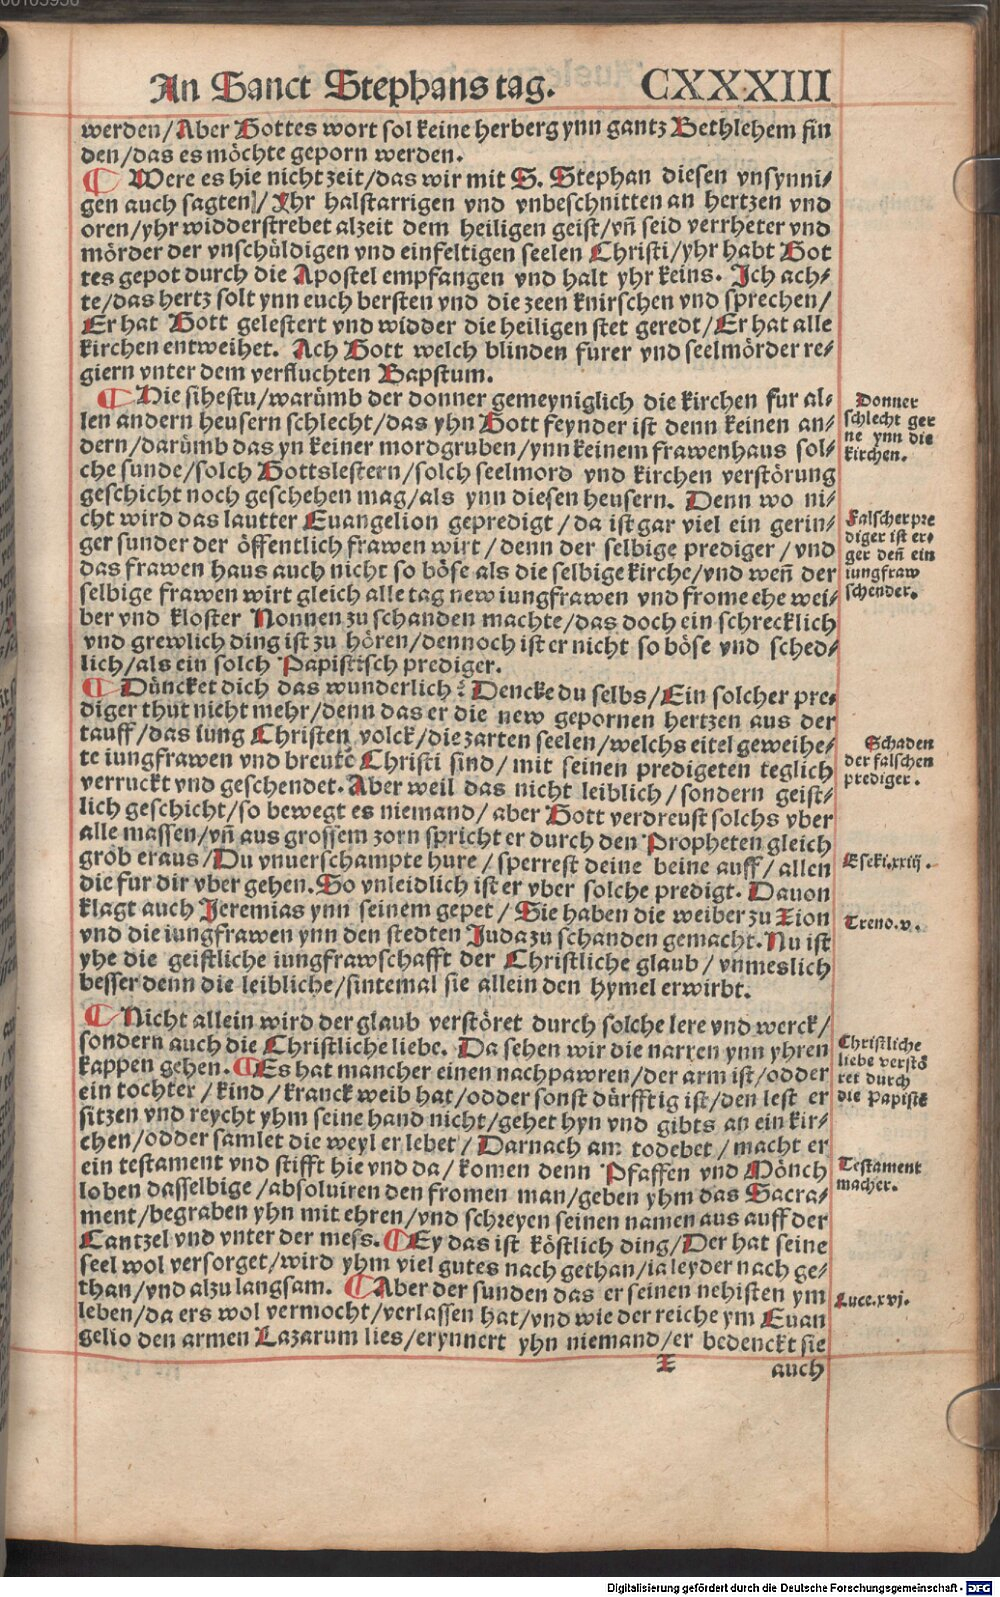 An Sanct Stephans tag. CXXXIII
werden/Aber Gottes wort sol keine herberg ynn gantz Bethlehem fin
den/das es möchte geporn werden.
Were es hie nicht zeit/das wir mit S. Stephan diesen vnsynni-
gen auch sagten/Ihr halstarrigen vnd vnbeschnitten an hertzen vnd
oren/yhr widderstrebet alzeit dem heiligen geist/vñ seid verrheter vnd
mörder der vnschüldigen vnd einfeltigen seelen Christi/yhr habt Got
tes gepot durch die Apostel empfangen vnd halt yhr keins. Ich ach-
te/das hertz solt ynn euch bersten vnd die zeen knirschen vnd sprechen/
Er hat Gott gelestert vnd widder die heiligen stet geredt/Er hat alle
kirchen entweihet. Ach Gott welch blinden furer vnd seelmörder re-
giern vnter dem verfluchten Bapstum.
Hie sihestu/warümb der donner gemeyniglich die kirchen fur al-
len andern heusern schlecht/das yhn Gott feynder ist denn keinen an-
dern/darümb das yn keiner mordgruben/ynn keinem frawenhaus sol-
che sunde/solch Gottslestern/solch seelmord vnd kirchen verstörung
geschicht noch geschehen mag/als ynn diesen heusern. Denn wo ni-
cht wird das lautter Euangelion gepredigt/da ist gar viel ein gerin-
ger sunder der öffentlich frawen wirt/denn der selbige prediger/vnd
das frawen haus auch nicht so böse als die selbige kirche/vnd weñ der
selbige frawen wirt gleich alle tag new iungfrawen vnd frome ehe wei-
ber vnd kloster Nonnen zu schanden machte/das doch ein schrecklich
vnd grewlich ding ist zu hören/dennoch ist er nicht so böse vnd sched-
lich/als ein solch Papistisch prediger.
Düncket dich das wunderlich? Dencke du selbs/Ein solcher pre-
diger thut nicht mehr/denn das er die new gepornen hertzen aus der
tauff/das iung Christen volck/die zarten seelen/welchs eitel geweihe-
te iungfrawen vnd breute Christi sind/mit seinen predigeten teglich
verruckt vnd geschendet. Aber weil das nicht leiblich/sondern geist-
lich geschicht/so bewegt es niemand/aber Gott verdreust solchs vber
alle massen/vñ aus grossem zorn spricht er durch den Propheten gleich
grob eraus/Du vnuerschampte hure/sperrest deine beine auff/allen
die fur dir vber gehen. So vnleidlich ist er vber solche predigt. Dauon
klagt auch Jeremias ynn seinem gepet/Sie haben die weiber zu Zion
vnd die iungfrawen ynn den stedten Juda zu schanden gemacht. Nu ist
yhe die geistliche iungfrawschafft der Christliche glaub/vnmeslich
besser denn die leibliche/sintemal sie allein den hymel erwirbt.
Nicht allein wird der glaub verstöret durch solche lere vnd werck/
sondern auch die Christliche liebe. Da sehen wir die narren ynn yhren
kappen gehen. Es hat mancher einen nachpawren/der arm ist/odder
ein tochter/kind/kranck weib hat/odder sonst dürfftig ist/den lest er
sitzen vnd reycht yhm seine hand nicht/gehet hyn vnd gibts an ein kir-
chen/odder samlet die weyl er lebet/Darnach am todebet/macht er
ein testament vnd stifft hie vnd da/komen denn Pfaffen vnd Mönch
loben dasselbige/absoluiren den fromen man/geben yhm das Sacra-
ment/begraben yhn mit ehren/vnd schreyen seinen namen aus auff der
Cantzel vnd vnter der mess. Ey das ist köstlich ding/Der hat seine
seel wol versorget/wird yhm viel gutes nach gethan/ia leyder nach ge-
than/vnd alzu langsam. Aber der sunden das er seinen nehisten ym
leben/da ers wol vermocht/verlassen hat/vnd wie der reiche ym Euan
gelio den armen Lazarum lies/erynnert yhn niemand/er bedenckt sie
X auch
Donner
schlecht ger
ne ynn die
kirchen.
Falscher pre
diger ist er-
ger deñ ein
iungfraw
schender.
Schaden
der falschen
prediger.
Eseki.xxiij.
Treno.v.
Christliche
liebe verstö
ret durch
die Papistē
Testament
macher.
Luce.xvj.
Digitalisierung gefördert durch die Deutsche Forschungsgemeinschaft - DFG